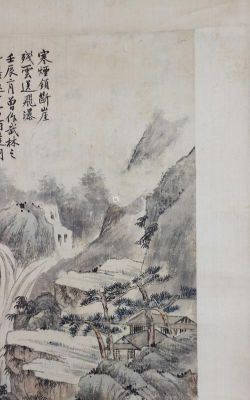 寒煙鎖斷崖
殘雲送飛瀑
壬辰六月曾作武林之